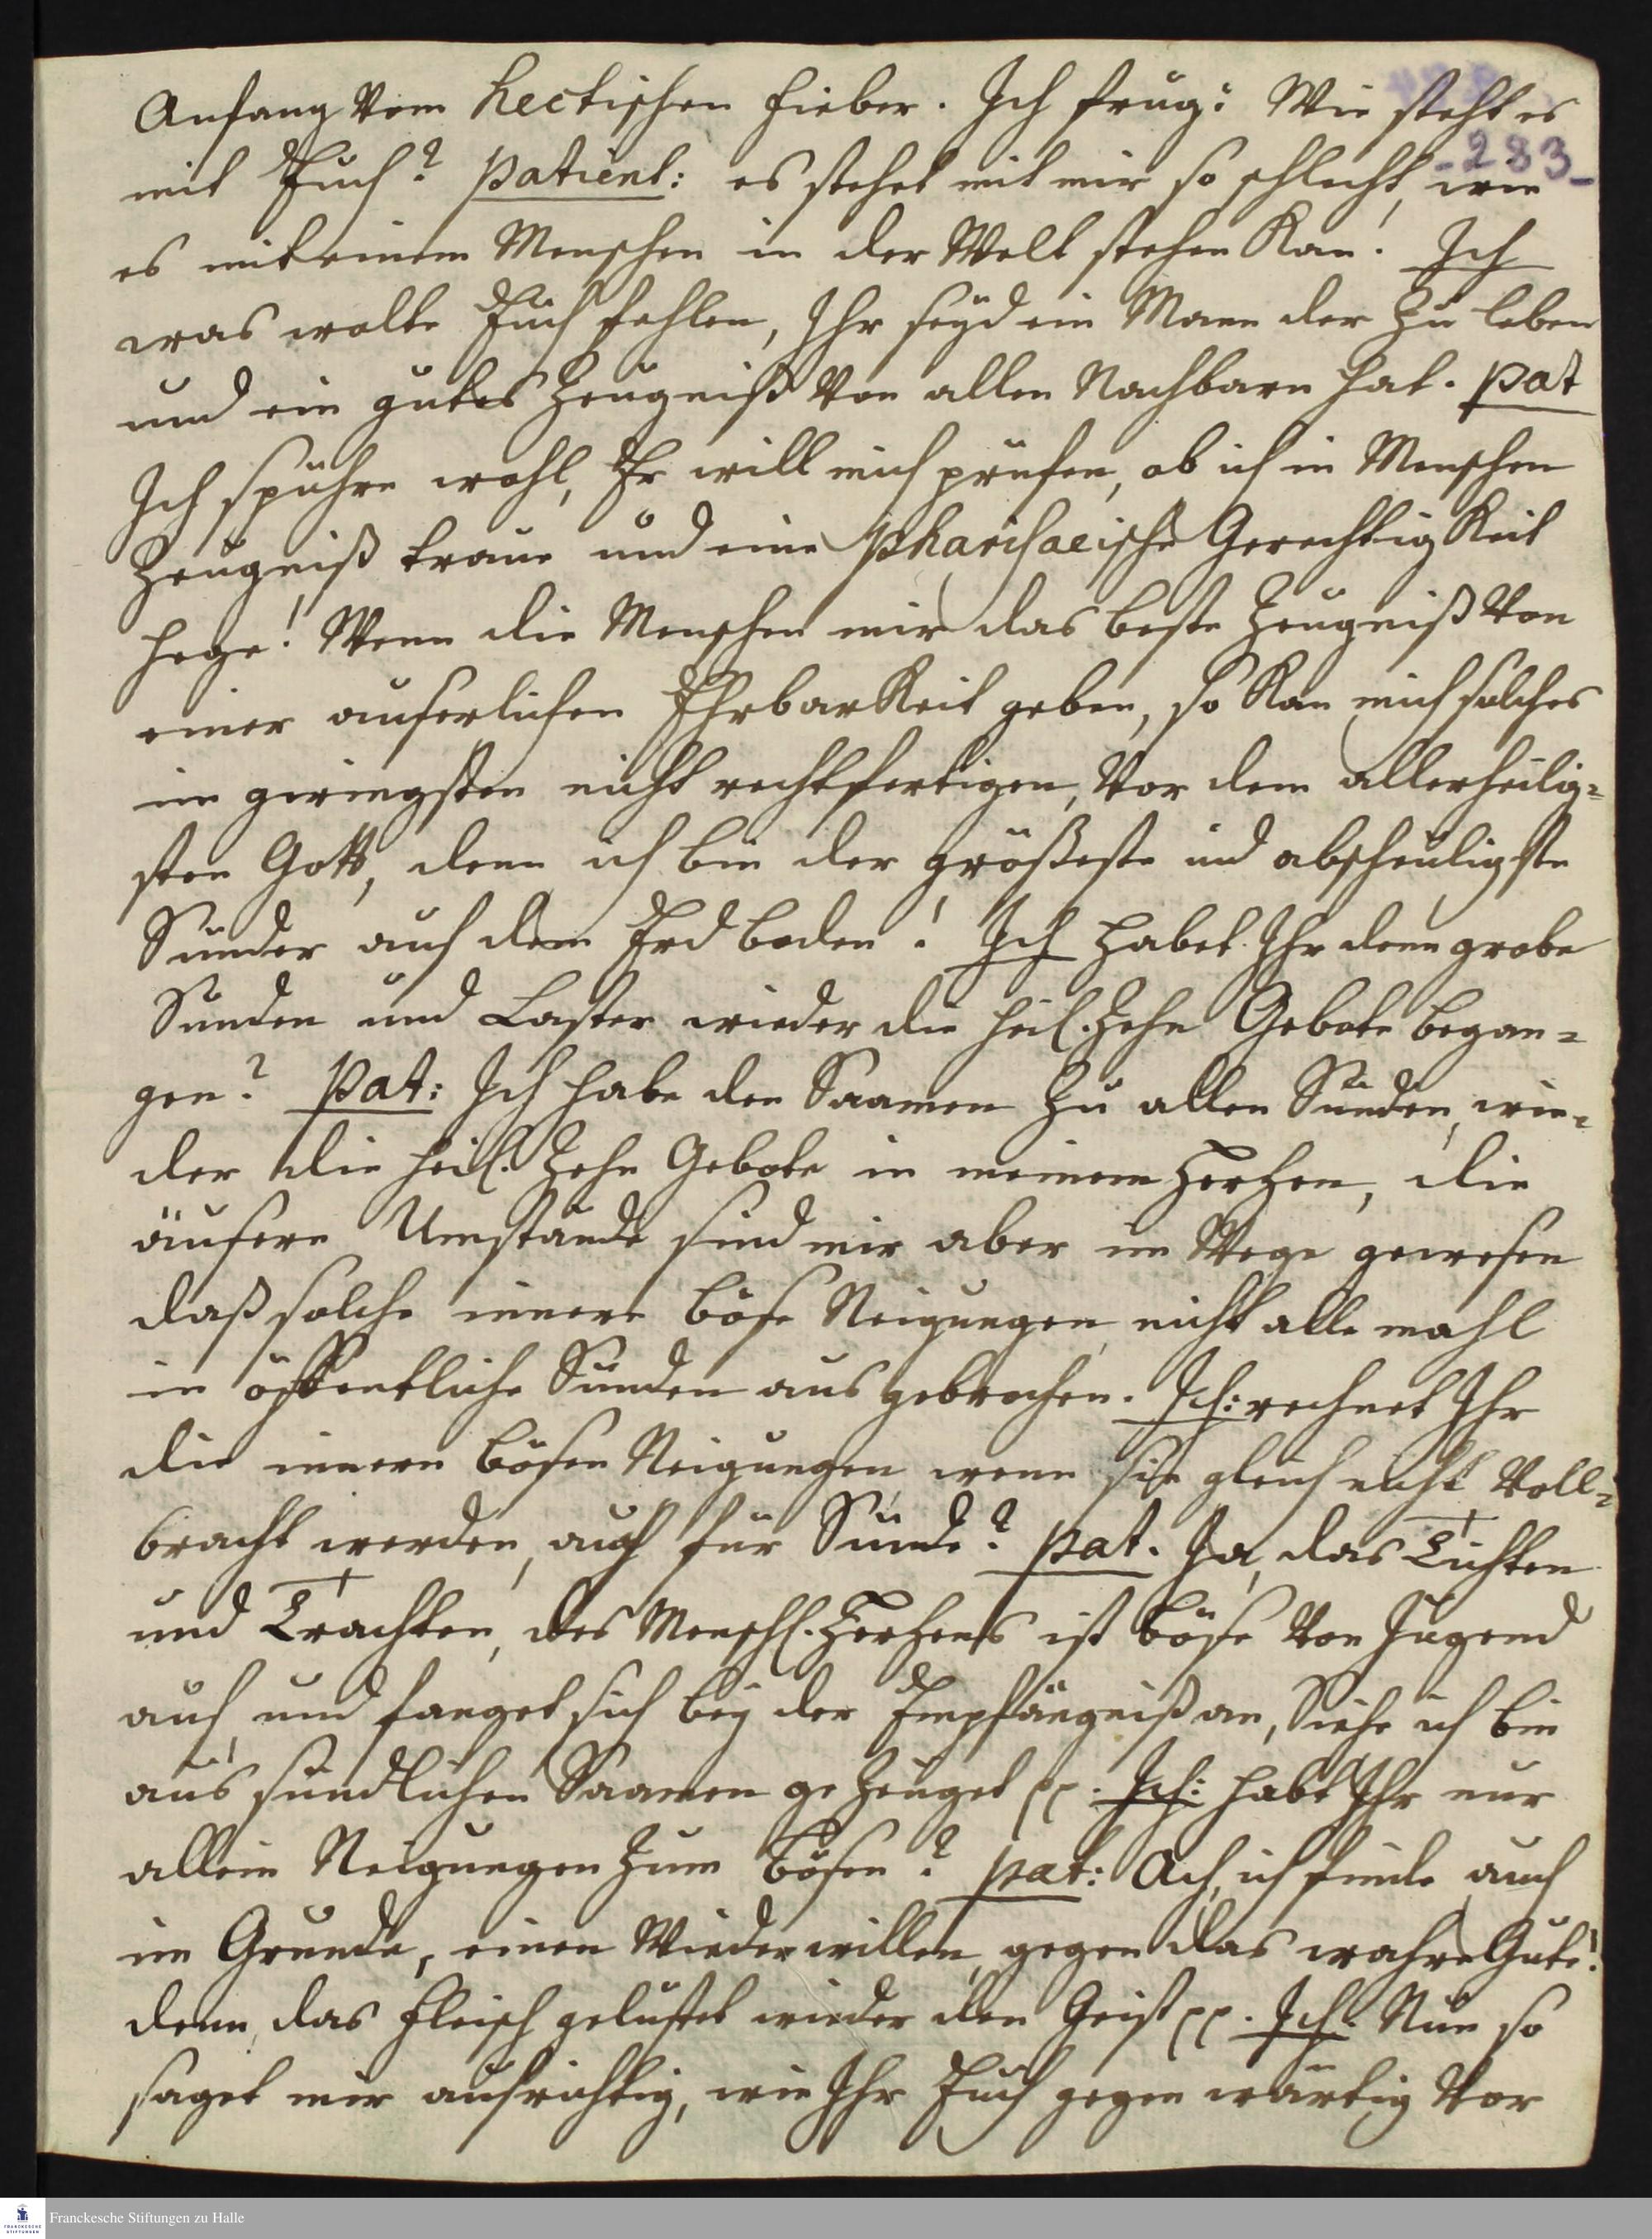 Anfang vom hectischen Fieber. Ich frug: Wie steht es
-283-
mit Euch? patient: es stehet mit mir so schlecht, wie
es mit einem Menschen in der Welt stehen Kan! Ich
was wolte Euch fehlen, Ihr seyd ein Mann der zu leben
und ein gutes Zeugniß von allen Nachbarn hat. pat
Ich spühre wohl, Er will mich prüfen, ob ich in Menschen
Zeugniß traue und eine pharisaeische Gerechtigkeit
hege! Wenn die Menschen mir das beste Zeugniß von
einer äuserlichen Ehrbarkeit geben, so Kan mich solches
im geringsten nicht rechtfertigen, vor dem allerheilig=
sten Gott, denn ich bin der größeste und abscheuligste
Sünder auf dem Erdboden! Ich habet Ihr denn grobe
Sünden und Laster wieder die heil. Zehn Gebote began=
gen? Pat: Ich habe den Saamen zu allen Sünden, wie=
der die heil. Zehn Gebote in meinem Herzen, die
äusere Umstände sind mir aber im Wege gewesen
daß solche innere böse Neigungen nicht alle mahl
in öffentliche Sünden aus gebrochen. Ich: rechnet Ihr
die innern bösen Neigungen, wenn sie gleich nicht voll=
bracht werden, auch für Sünde? pat. Ja, das Tichten
und Trachten, des Menschl. Herzens ist böse von Jugend
auf, und fanget sich bey der Empfängniß an, Siehe ich bin
aus sündlichen Saamen gezeuget pp. Ich: habt Ihr nur
allein Neigungen zum bösen? pat: Ach, ich finde auch
im Grunde, einen Wiederwillen, gegen das wahre Gute!
denn, das Fleisch gelüstet wieder den Geist pp. Ich. Nun so
saget mir aufrichtig, wie Ihr Euch gegenwärtig vor
Franckesche Stiftungen zu Halle